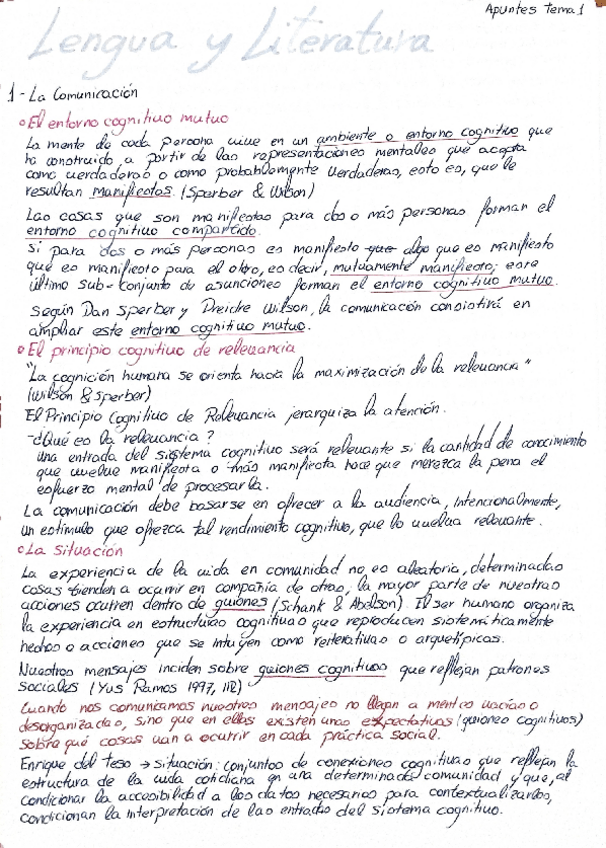 Apuntes Tema 1
Lengua y Literatura
1- La Comunicación
El entorno cognitivo mutuo
La mente de cada persona vive en un ambiente o entorno cognitivo que
ha construido a partir de las representaciones mentales que acepta
como verdaderas o como probablemente verdaderas, esto es, que le
resultan manifiestas. (Sperber & Wilson)
Las cosas que son manifiestas para dos o más personas forman el
entorno cognitivo compartido.
Si para dos o más personas es manifiesto que algo que es manifiesto
que es manifiesto para el otro, es decir, mutuamente manifiesto; este
último sub-conjunto de asunciones forman el entorno cognitivo mutuo.
Según Dan Sperber y Deidre Wilson, la comunicación consistirá en
ampliar este entorno cognitivo mutuo.
El principio cognitivo de relevancia
"La cognición humana se orienta hacia la maximización de la relevancia"
(Wilson & Sperber)
El Principio Cognitivo de Relevancia jerarquiza la atención.
-¿Qué es la relevancia?
Una entrada del sistema cognitivo será relevante si la cantidad de conocimiento
que vuelve manifiesta o más manifiesta hace que merezca la pena el
esfuerzo mental de procesarla.
La comunicación debe basarse en ofrecer a la audiencia, intencionalmente,
un estímulo que ofrezca tal rendimiento cognitivo, que lo vuelva relevante.
La Situación
La experiencia de la vida en comunidad no es aleatoria, determinadas
cosas tienden a ocurrir en compañía de otras, la mayor parte de nuestras
acciones ocurren dentro de guiones (Schank & Abelson). El ser humano organiza
la experiencia en estructuras cognitivas que reproducen sistemáticamente
hechos o acciones que se intuyen como reiterativas o arquetípicas.
Nuestros mensajes inciden sobre guiones cognitivos que reflejan patrones
sociales (Yus Ramos 1997, 112)
Cuando nos comunicamos nuestros mensajes no llegan a mentes vacías o
desorganizadas, sino que en ellas existen unas expectativas (guiones cognitivos)
sobre qué cosas van a ocurrir en cada práctica social.
Enrique del Teso → situación: conjuntos de conexiones cognitivas que reflejan la
estructura de la vida cotidiana en una determinada comunidad y que, al
condicionar la accesibilidad a los datos necesarios para contextualizarlos,
condicionan la interpretación de las entradas del sistema cognitivo.